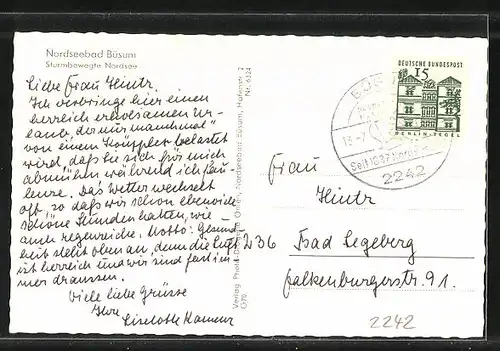 Nordseebad Büsum
Sturmbewegte Nordsee
Liebe Frau Hintz.
Ich verbringe hier einen
herrlich erholsamen Ur-
laub, der nur manchmal
von einem
wird, daß Sie sich für mich
abmühen während ich fau-
lenze. Das Wetter wechselt
oft, so daß wir schon ebenviele
schöne Stunden hatten, wie
auch regenreiche. Motto: Gesund-
heit steht oben an, denn die Luft
ist herrlich und wir sind fast im-
mer draussen.
Viele liebe Grüsse
Ihre
Liselotte
Verlag Photo-Dro Nordseebad Büsum, Hafenstr. 2
Nr. 4324
DEUTSCHE BUNDESPOST
15
BERLIN-TEGEL
BÜS
Seit 1837
2242
Frau
Hintz
236 Bad Segeberg
Falkenburgerstr. 91.
2242